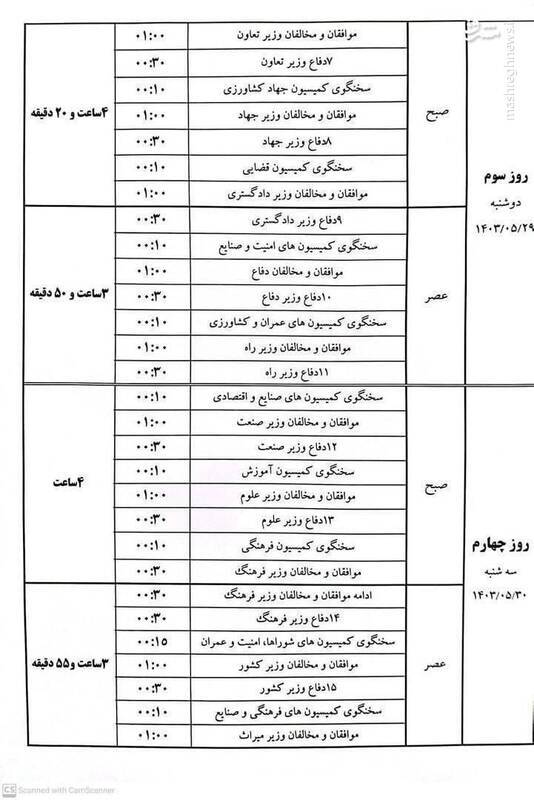 مشرق
mashreghnews.ir
روز سوم
دوشنبه
۱۴۰۳/۰۵/۲۹
صبح
موافقان و مخالفان وزیر تعاون ۰۱:۰۰
۷دفاع وزیر تعاون ۰۰:۳۰
سخنگوی کمیسیون جهاد کشاورزی ۰۰:۱۰
موافقان و مخالفان وزیر جهاد ۰۱:۰۰
۸دفاع وزیر جهاد ۰۰:۳۰
سخنگوی کمیسیون قضایی ۰۰:۱۰
موافقان و مخالفان وزیر دادگستری ۰۱:۰۰
۴ساعت و ۲۰ دقیقه
عصر
۹دفاع وزیر دادگستری ۰۰:۳۰
سخنگوی کمیسیون های امنیت و صنایع ۰۰:۱۰
موافقان و مخالفان دفاع ۰۱:۰۰
۱۰دفاع وزیر دفاع ۰۰:۳۰
سخنگوی کمیسیون های عمران و کشاورزی ۰۰:۱۰
موافقان و مخالفان وزیر راه ۰۱:۰۰
۱۱دفاع وزیر راه ۰۰:۳۰
۳ساعت و ۵۰ دقیقه
روز چهارم
سه شنبه
۱۴۰۳/۰۵/۳۰
صبح
سخنگوی کمیسیون های صنایع و اقتصادی ۰۰:۱۰
موافقان و مخالفان وزیر صنعت ۰۱:۰۰
۱۲دفاع وزیر صنعت ۰۰:۳۰
سخنگوی کمیسیون آموزش ۰۰:۱۰
موافقان و مخالفان وزیر علوم ۰۱:۰۰
۱۳دفاع وزیر علوم ۰۰:۳۰
سخنگوی کمیسیون فرهنگی ۰۰:۱۰
موافقان و مخالفان وزیر فرهنگ ۰۰:۳۰
۴ساعت
عصر
ادامه موافقان و مخالفان وزیر فرهنگ ۰۰:۳۰
۱۴دفاع وزیر فرهنگ ۰۰:۳۰
سخنگوی کمیسیون های شوراها، امنیت و عمران ۰۰:۱۵
موافقان و مخالفان وزیر کشور ۰۱:۰۰
۱۵دفاع وزیر کشور ۰۰:۳۰
سخنگوی کمیسیون های فرهنگی و صنایع ۰۰:۱۰
موافقان و مخالفان وزیر میراث ۰۱:۰۰
۳ساعت و۵۵ دقیقه
CS Scanned with CamScanner